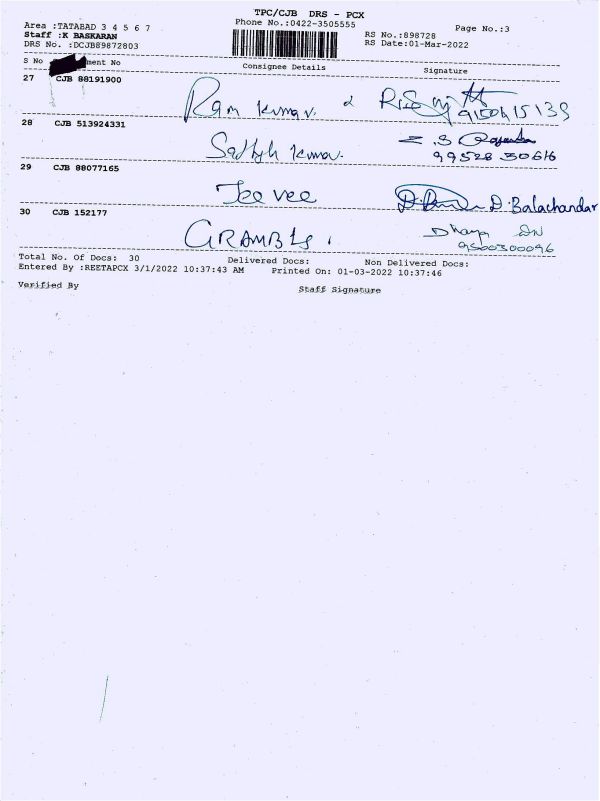 TPC/CJB DRS - PCX
Area :TATABAD 3 4 5 6 7 Phone No.:0422-3505555 Page No.:3
Staff :K BASKARAN RS No.:898728
DRS No. :DCJB89872803 RS Date:01-Mar-2022
S No ment No Consignee Details Signature
27 CJB 88191900
Ram kumar.
28 CJB 513924331
Sathish kumar.
99528 30616
29 CJB 88077165
Tee vee D. Balachandar
30 CJB 152177
GRAMBLS.
9500300096
Total No. Of Docs: 30 Delivered Docs: Non Delivered Docs:
Entered By :REETAPCX 3/1/2022 10:37:43 AM Printed On: 01-03-2022 10:37:46
Verified By Staff Signature